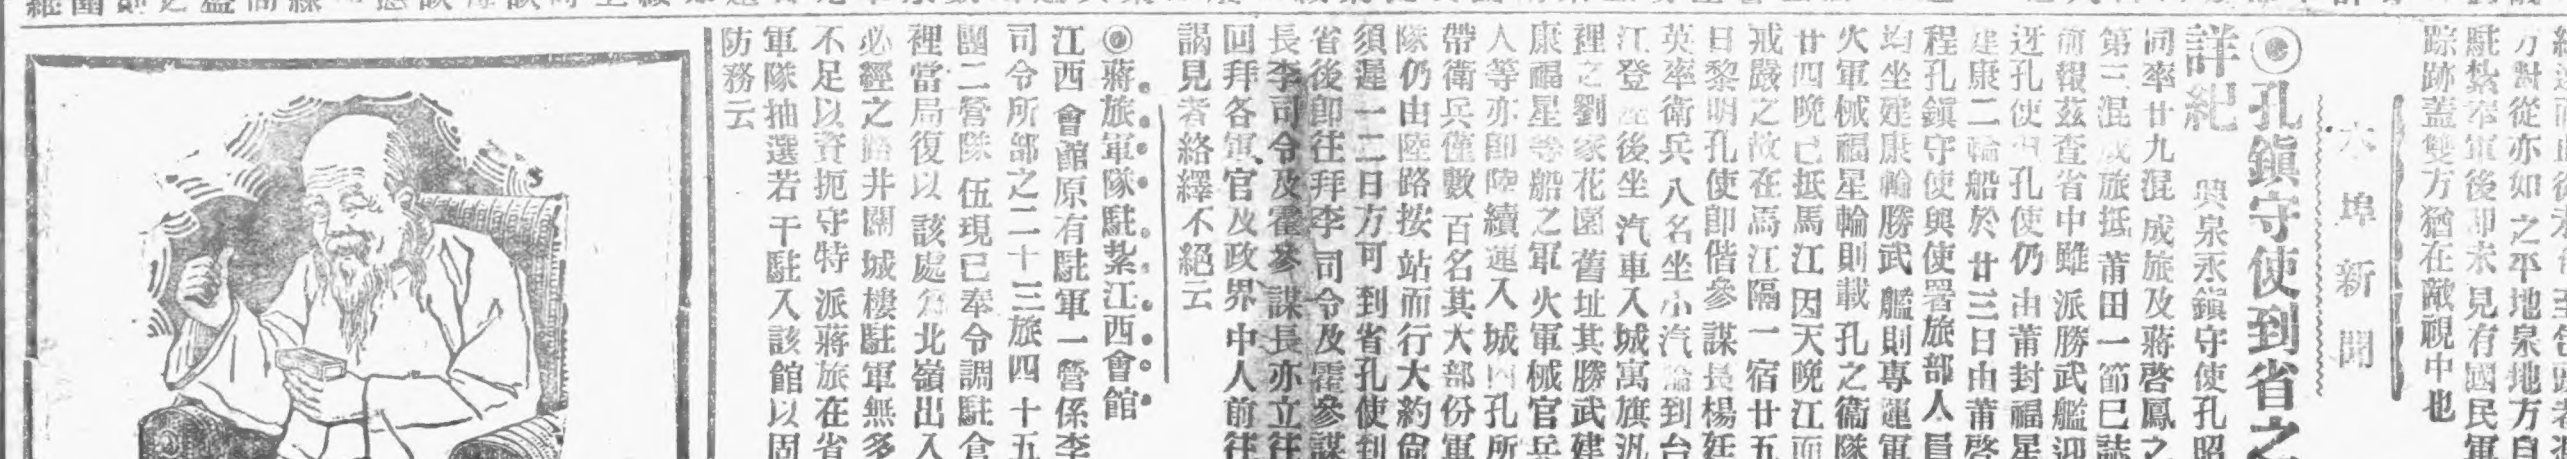 方對從亦如之平地泉地方自
駐紮奉軍後即未見有國民軍
踪跡蓋雙方猶在敵視中也
本埠新聞
◎孔鎮守使到省之
詳紀 興泉永鎮守使孔昭
同率廿九混成旅及蔣啓鳳之
第三混成旅抵莆田一節已誌
前報茲查省中雖派勝武艦迎
迓孔使 孔使仍由莆封福星
建康二輪船於廿三日由莆啓
程孔鎮守使與使署旅部人員
均坐建康輪勝武艦則專運軍
火軍械福星輪則載孔之衛隊
廿四晚已抵馬江因天晚江面
戒嚴之故在馬江隔一宿廿五
日黎明孔使即偕參謀長楊廷
英率衛兵八名坐小汽輪到台
江登 後坐汽車入城寓旗汛
裡之劉家花園舊址其勝武建
康福星等船之軍火軍械官兵
人等亦即陸續運入城內孔所
帶衛兵僅數百名其大部份軍
隊仍由陸路按站而行大約尙
須遲一二日方可到省孔使到
省後即往拜李司令及霍參謀
長李司令及霍參謀長亦立往
回拜各軍官及政界中人前往
謁見者絡繹不絕云
◎蔣旅軍隊駐紮江西會館
江西會館原有駐軍一營係李
司令所部之二十三旅四十五
團二營隊伍現已奉令調駐倉
裡當局復以該處爲北嶺出入
必經之路井關城樓駐軍無多
不足以資扼守特派蔣旅在省
軍隊抽選若干駐入該館以固
防務云